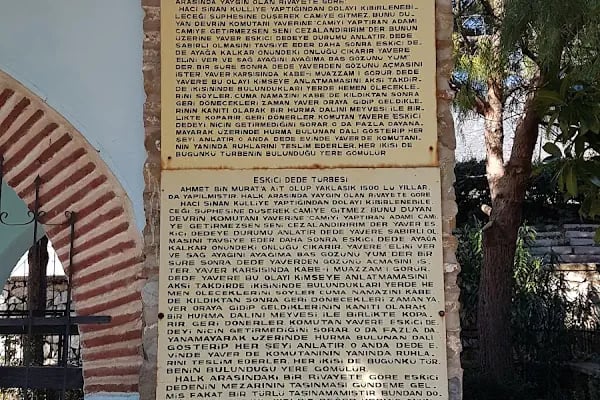 ARASINDA YAYGIN OLAN RİVAYETE GÖRE
HACI SİNAN KÜLLİYE YAPTIĞINDAN DOLAYI KİBİRLENEBİ-
LECEĞİ ŞÜPHESİNE DÜŞEREK CAMİYE GİTMEZ. BUNU DU-
YAN DEVRİN KOMUTANI YAVERİNE CAMİYİ YAPTIRAN ADAMI
CAMİYE GETİRMEZSEN SENİ CEZALANDIRIRIM DER BUNUN
ÜZERİNE YAVER ESKİCİ DEDEYE DURUMU ANLATIR. DEDE
SABIRLI OLMASINI TAVSİYE EDER DAHA SONRA ESKİCİ DE-
DE AYAĞA KALKAR ÖNÜNDEKİ ÖNLÜĞÜ ÇIKARIR YAVERE
ELİNİ VER VE SAĞ AYAĞINI AYAĞIMA BAS GÖZÜNÜ YUM
DER BİR SÜRE SONRA DEDE YAVERDEN GÖZÜNÜ AÇMASINI
İSTER. YAVER KARŞISINDA KABE-İ MUAZZAM'I GÖRÜR. DEDE
YAVERE BU OLAYI KİMSEYE ANLATMAMASINI AKSİ TAKDİR-
DE İKİSİNİNDE BULUNDUKLARI YERDE HEMEN ÖLECEKLE-
RİNİ SÖYLER. CUMA NAMAZINI KABE DE KILDIKTAN SONRA
GERİ DÖNECEKLERİ ZAMAN YAVER ORAYA GİDİP GELDİKLE-
RİNİN KANITI OLARAK BİR HURMA DALINI MEYVESİ İLE BİR-
LİKTE KOPARIR GERİ DÖNERLER. KOMUTAN YAVERE ESKİCİ
DEDEYİ NİÇİN GETİRMEDİĞİNİ SORAR. O DA FAZLA DAYANA-
MAYARAK ÜZERİNDE HURMA BULUNAN DALI GÖSTERİP HER
ŞEYİ ANLATIR. O ANDA DEDE EVİNDE YAVER'DE KOMUTANI-
NIN YANINDA RUHLARINI TESLİM EDERLER. HER İKİSİ DE
BUGÜNKÜ TÜRBENİN BULUNDUĞU YERE GÖMÜLÜR.
ESKİCİ DEDE TÜRBESİ
AHMET BİN MURAT'A AİT OLUP YAKLAŞIK 1500 LÜ YILLAR-
DA YAPILMIŞTIR. HALK ARASINDA YAYGIN OLAN RİVAYETE GÖRE
HACI SİNAN KÜLLİYE YAPTIĞINDAN DOLAYI KİBİRLENEBİLE-
CEĞİ ŞÜPHESİNE DÜŞEREK CAMİYE GİTMEZ. BUNU DUYAN
DEVRİN KOMUTANI YAVERİNE "CAMİYİ YAPTIRAN ADAMI CAMİ-
YE GETİRMEZSEN SENİ CEZALANDIRIRIM DER YAVER ES-
KİCİ DEDEYE DURUMU ANLATIR DEDE YAVERE SABIRLI OL-
MASINI TAVSİYE EDER DAHA SONRA ESKİCİ DEDE AYAĞA
KALKAR ÖNÜNDEKİ ÖNLÜĞÜ ÇIKARIR YAVERE "ELİNİ VER
VE SAĞ AYAĞINI AYAĞIMA BAS GÖZÜNÜ YUM" DER BİR
SÜRE SONRA DEDE YAVERDEN GÖZÜNÜ AÇMASINI İS-
TER. YAVER KARŞISINDA KABE-İ MUAZZAM'I GÖRÜR.
DEDE YAVERE BU OLAYI KİMSEYE ANLATMAMASINI
AKSİ TAKDİRDE İKİSİNİNDE BULUNDUKLARI YERDE HE-
MEN ÖLECEKLERİNİ SÖYLER CUMA NAMAZINI KABE-
DE KILDIKTAN SONRA GERİ DÖNECEKLERİ ZAMAN YA-
VER ORAYA GİDİP GELDİKLERİNİN KANITI OLARAK
BİR HURMA DALINI MEYVESİ İLE BİRLİKTE KOPA-
RIR GERİ DÖNERLER. KOMUTAN YAVERE ESKİCİ DE-
DEYİ NİÇİN GETİRMEDİĞİNİ SORAR. O DA FAZLA DA-
YANAMAYARAK ÜZERİNDE HURMA BULUNAN DALI
GÖSTERİP HER ŞEYİ ANLATIR O ANDA DEDE E-
VİNDE YAVER DE KOMUTANININ YANINDA RUHLA-
RINI TESLİM EDERLER. HER İKİSİ DE BUGÜNKÜ TÜR-
BENİN BULUNDUĞU YERE GÖMÜLÜR.
HALK ARASINDAKİ BİR RİVAYETE GÖRE ESKİCİ
DEDENİN MEZARININ TAŞINMASI GÜNDEME GEL-
MİŞ FAKAT BİR TÜRLÜ TAŞINAMAMIŞTIR BUNDAN DO-